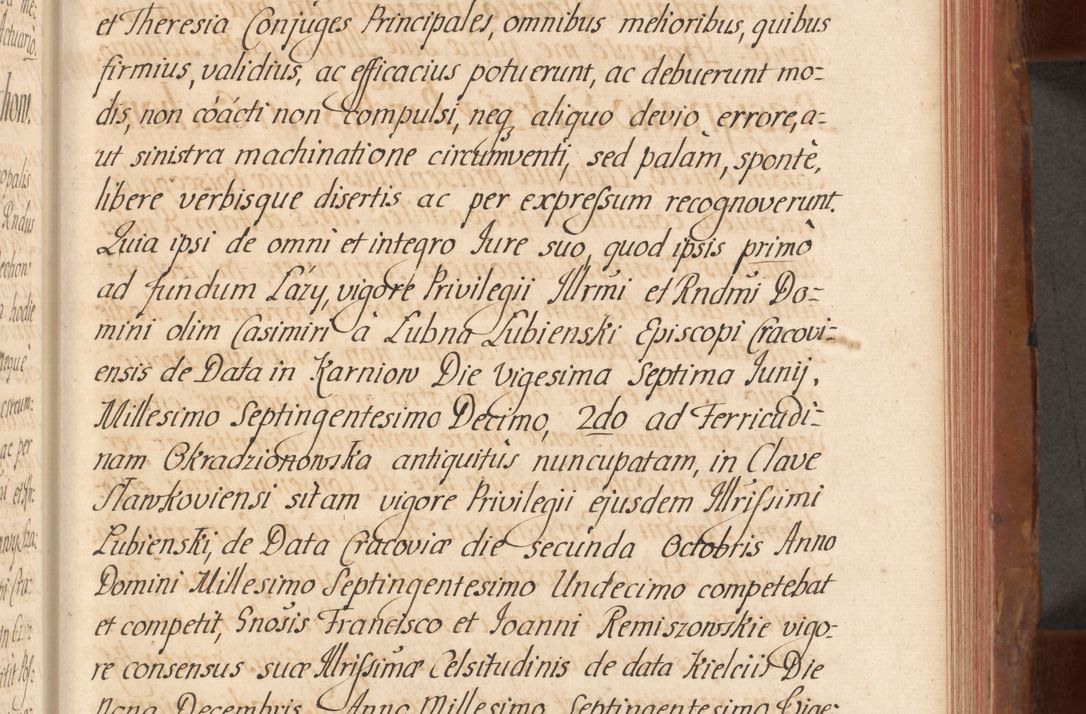 et Theresia Conjuges Principales, omnibus melioribus, quibus
firmius, validius, ac efficacius potuerunt, ac debuerunt mo=
dis, non cóácti non compulsi, neq₃ aliquo devio errore, a=
ut sinistra machinatione circumventi, sed palàm, spontè,
libere verbisque disertis ac per expreſsum recognoverunt.
Quia ipsi de omni et integro Jure suo, quod ipsis primò
ad fundum Łazy, vigore Privilegii Illrmi et Rndmi Do=
mini olim Casimiri à Łubna Łubienski Episcopi Cracovi=
ensis de Data in Karniow Die Vigesima Septima Junij.
Millesimo Septingentesimo Decimo, 2do ad Ferricudi=
nam Okradzionowska antiquitùs nuncupatam, in Clave
Sławkoviensi sitam vigore Privilegii ejusdem Illriſsimi
Łubienski, de Data Cracoviæ die secunda Octobris Anno
Domini Millesimo Septingentesimo Undecimo competebat
et competit, Gnosis Francisco et Joanni Remiszowskie vigo=
re consensus suæ Illriſsimæ Celsitudinis de data Kielciis Die
Nona Decembris Anno Millesimo Septingentesimo Vige=